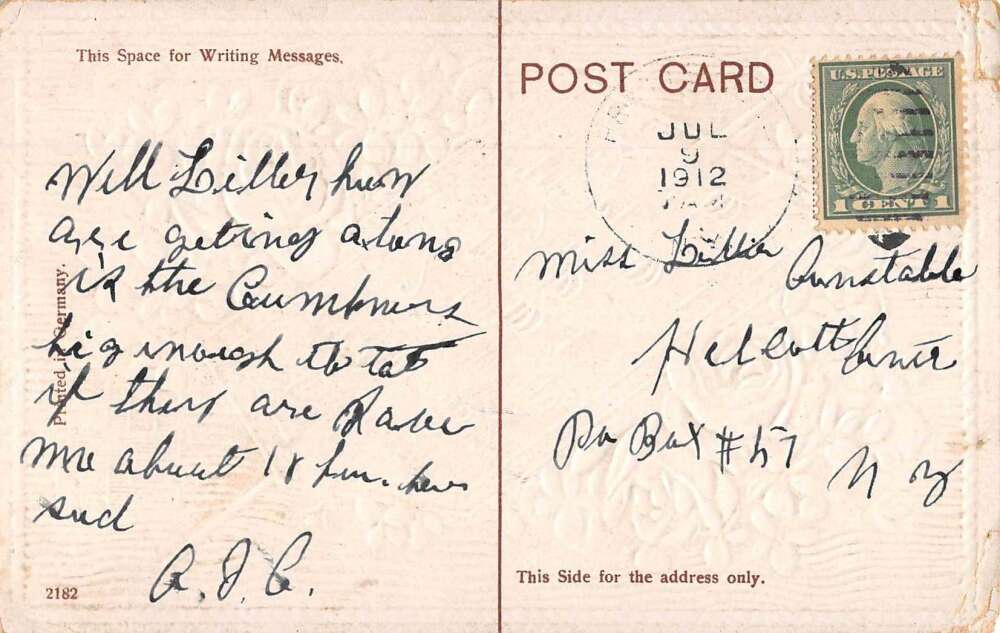 This Space for Writing Messages.
Well Lilley how
are geting along
is the Cumbners
big inough to
if they are Save
me about 18 hun.
sud
A. J. C.
Printed in Germany.
2182
POST CARD
JUL
9
1912
U.S. POSTAGE
1 CENT 1
Miss Lillie Cunstable
Helcott Center
Po Box #57
N Y
This Side for the address only.